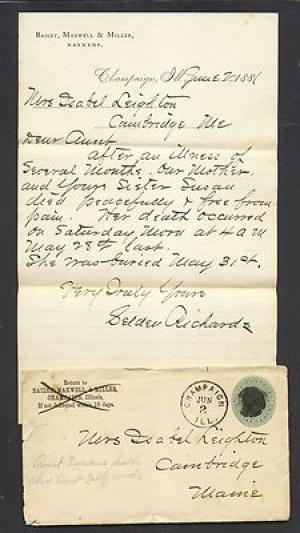 BAILEY, MAXWELL & MILLER,
BANKERS,
Champaign, Ill June 2 1881
Mrs Isabel Leighton
Cambridge Me
Dear Aunt
after an illness of
Several Months. Our Mother
and Your Sister Susan
died peacefully & free from
pain. Her death occurred
on Saturday Morn at 4 a m
May 28th last.
She was buried May 31st.
Very Truly Yours
Selden Richards
Return to
BAILEY, MAXWELL & MILLER,
CHAMPAIGN, Illinois,
If not delivered within 10 days.
CHAMPAIGN
JUN
2
ILL.
Mrs Isabel Leighton
Cambridge
Maine
Aunt Susans death